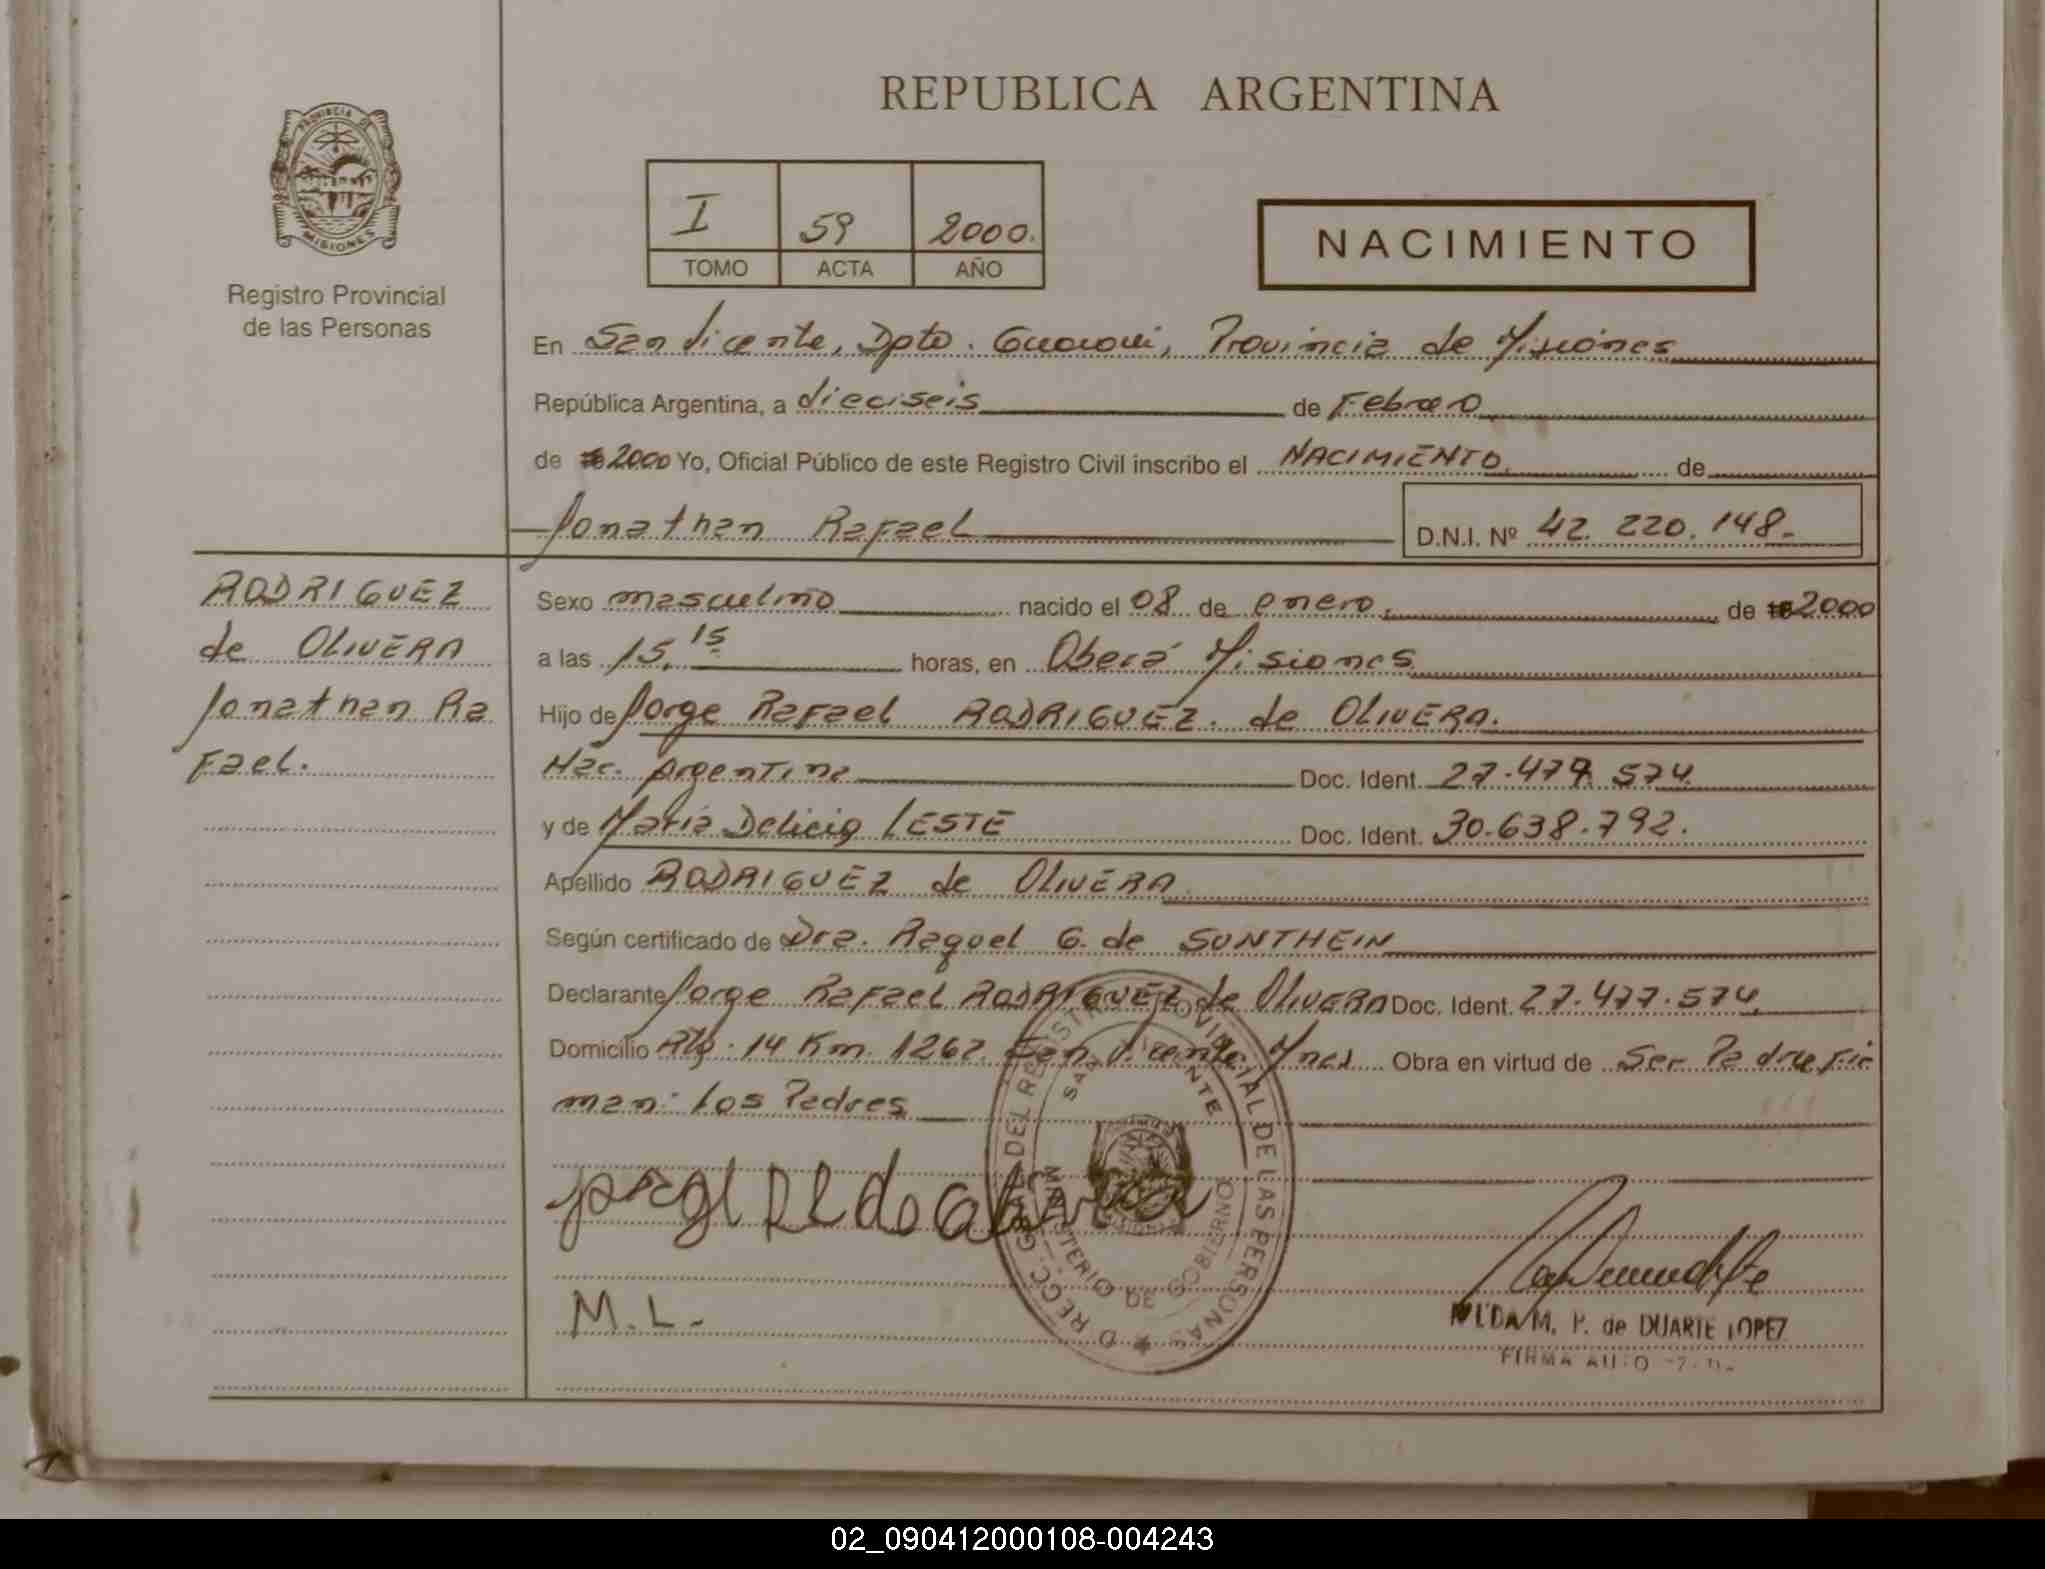 REPUBLICA ARGENTINA
PROVINCIA DE
MISIONES
Registro Provincial
de las Personas
I 59 2000.
TOMO ACTA AÑO
NACIMIENTO
En San Vicente, Dpto. Guarani, Provincia de Misiones
República Argentina, a dieciseis de Febrero
de 2000 Yo, Oficial Público de este Registro Civil inscribo el NACIMIENTO de
Jonathan Rafael D.N.I. Nº 42.220.148.-
RODRIGUEZ
de OLIVERA
Jonathan Ra
Fael.
Sexo masculino nacido el 08 de enero. de 2000
a las 15,15 horas, en Oberá Misiones
Hijo de Jorge Rafael RODRIGUEZ de OLIVERA.
Nac. Argentina Doc. Ident. 27.477.574
y de Maria Delicia LESTE Doc. Ident. 30.638.792.
Apellido RODRIGUEZ de OLIVERA
Según certificado de Dra. Raquel G. de SUNTHEIN
Declarante Jorge Rafael RODRIGUEZ de OLIVERA Doc. Ident. 27.477.574
Domicilio 14 Km. 1262 San Vicente Mnes Obra en virtud de Ser Padre Fir
man: Los Padres
DEL REGISTRO PROVINCIAL DE LAS PERSONAS
SAN VICENTE
MINISTERIO DE GOBIERNO
M.L.-
NILDA M. P. de DUARTE LOPEZ
02_090412000108-004243